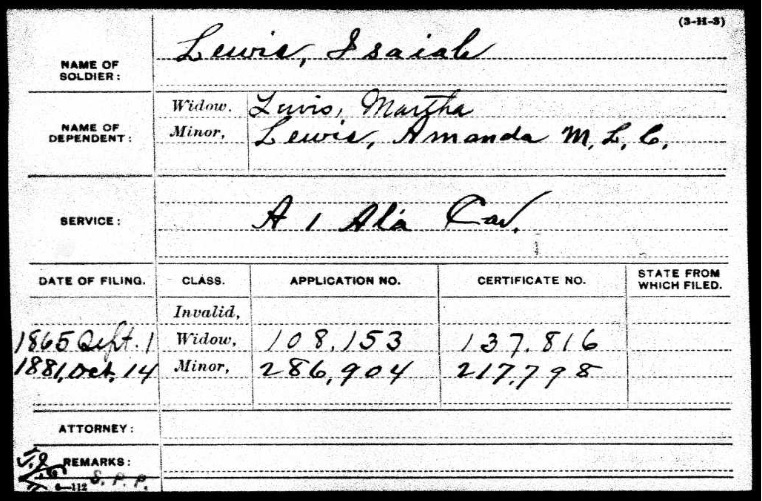 (3-H-3)
NAME OF SOLDIER: Lewis, Isaiah
NAME OF DEPENDENT:
Widow. Lewis, Martha
Minor, Lewis, Amanda M. L. C.
SERVICE: A 1 Ala Cav.
DATE OF FILING. CLASS. APPLICATION NO. CERTIFICATE NO. STATE FROM WHICH FILED.
Invalid,
1865 Sept. 1 Widow, 108,153 137.816
1881, Oct. 14 Minor, 286,904 217.798
ATTORNEY:
REMARKS:
6—112 S. P. P.